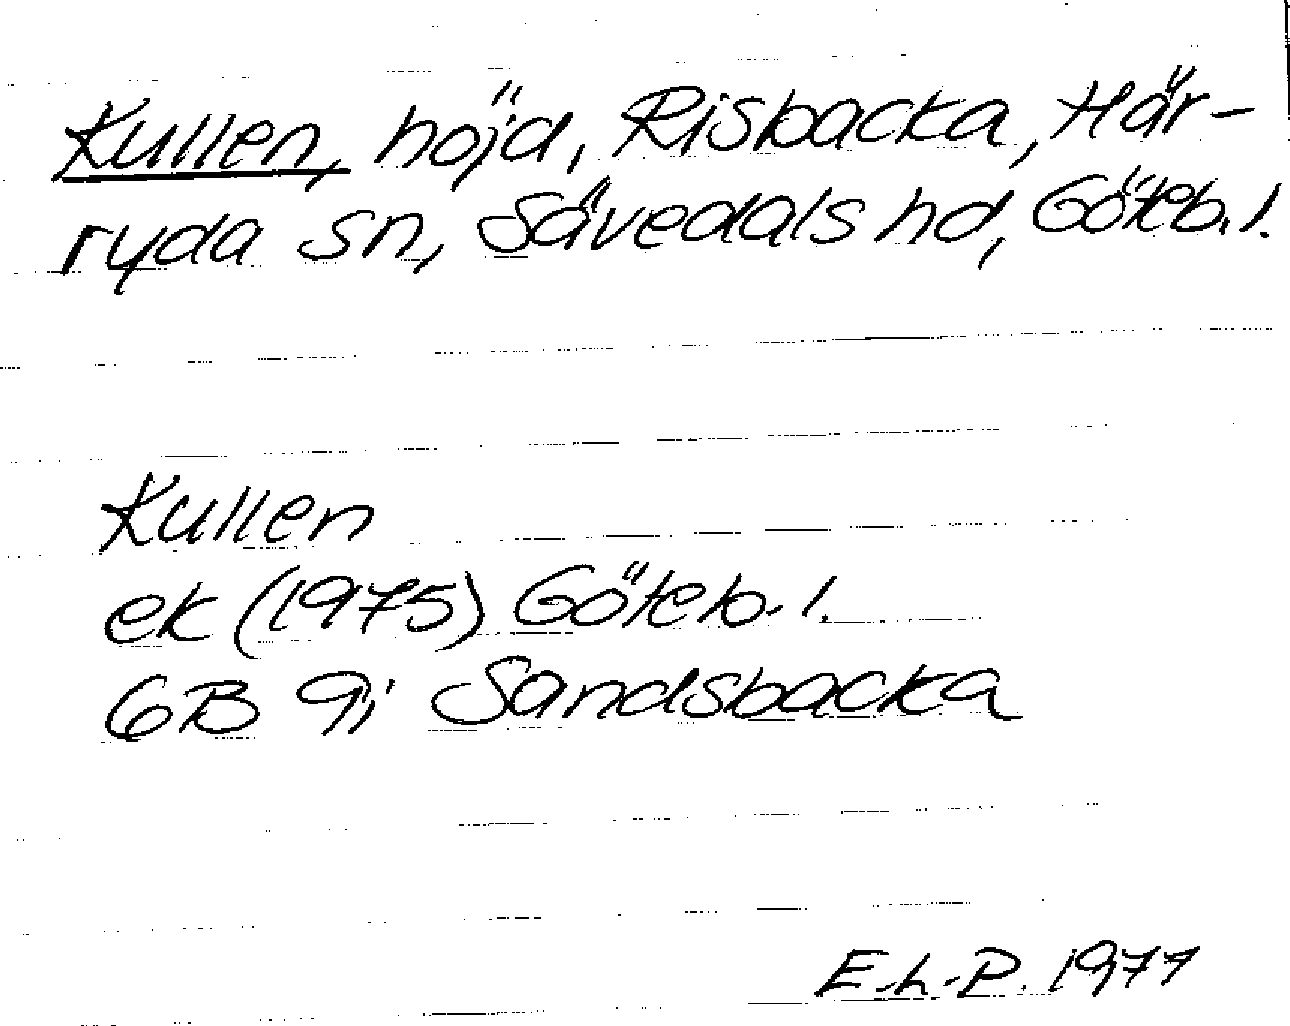 Kullen, höjd, Risbacka, Här-
ryda sn, Sävedals hd, Göteb. l.
Kullen
ek (1975) Göteb. l.
6B 9i Sandsbacka
E.L.P. 1977